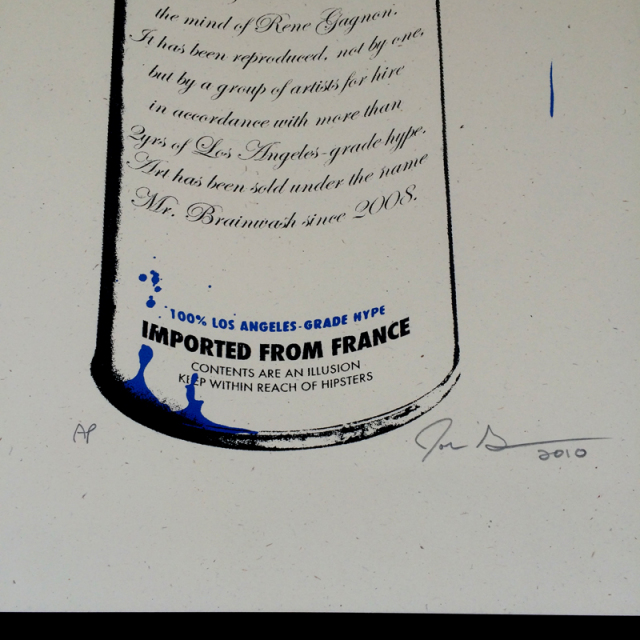 the mind of Rene Gagnon.
It has been reproduced, not by one,
but by a group of artists for hire
in accordance with more than
2yrs of Los Angeles-grade hype.
Art has been sold under the name
Mr. Brainwash since 2008.
100% LOS ANGELES-GRADE HYPE
IMPORTED FROM FRANCE
CONTENTS ARE AN ILLUSION
KEEP WITHIN REACH OF HIPSTERS
AP
2010